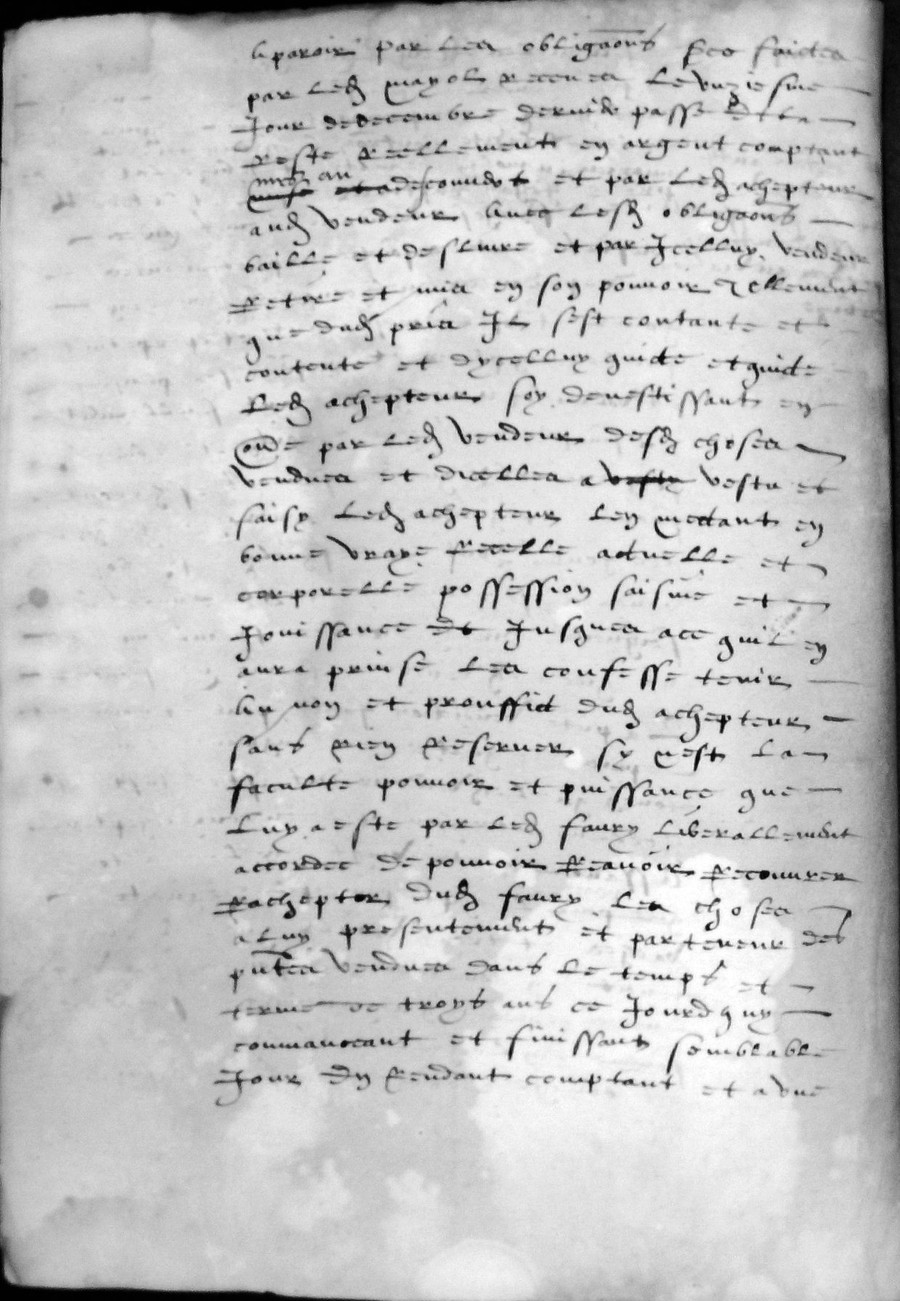 aparoir par les obligaons sur ce faictes
par led mayol receues le unziesme
Jour de decembre dernier passe et la
reste reellement en argent comptant
et par led achepteur
aud vendeur avec lesd obligaons
baille et deslivre et par Icelluy vendeur
retire et mis en son pouvoir tellement
que dud pris Il sest contante et
contente et dycelluy quicte et quicte
led achepteur soy devestissant en
oultre par led vendeur desd choses
vendues et dicelles a vestu et
saisy led achepteur len mettant en
bonne vraye reelle actuelle et
corporelle possession saisine et
Jouissance et Jusques a ce quil en
aura prinse les confesse tenir
au nom et prouffict dud achepteur
sans rien reserver sy nest la
faculte pouvoir et puissance que
luy a este par led faury liberallement
accordee de pouvoir reavoir recouvrer
rachepter dud faury les choses
a luy presentement et par teneur des
pntes vendues dans le temps et
terme de troys ans ce Jourdhuy
commanceant et finissant semblable
Jour en rendant comptant et a une